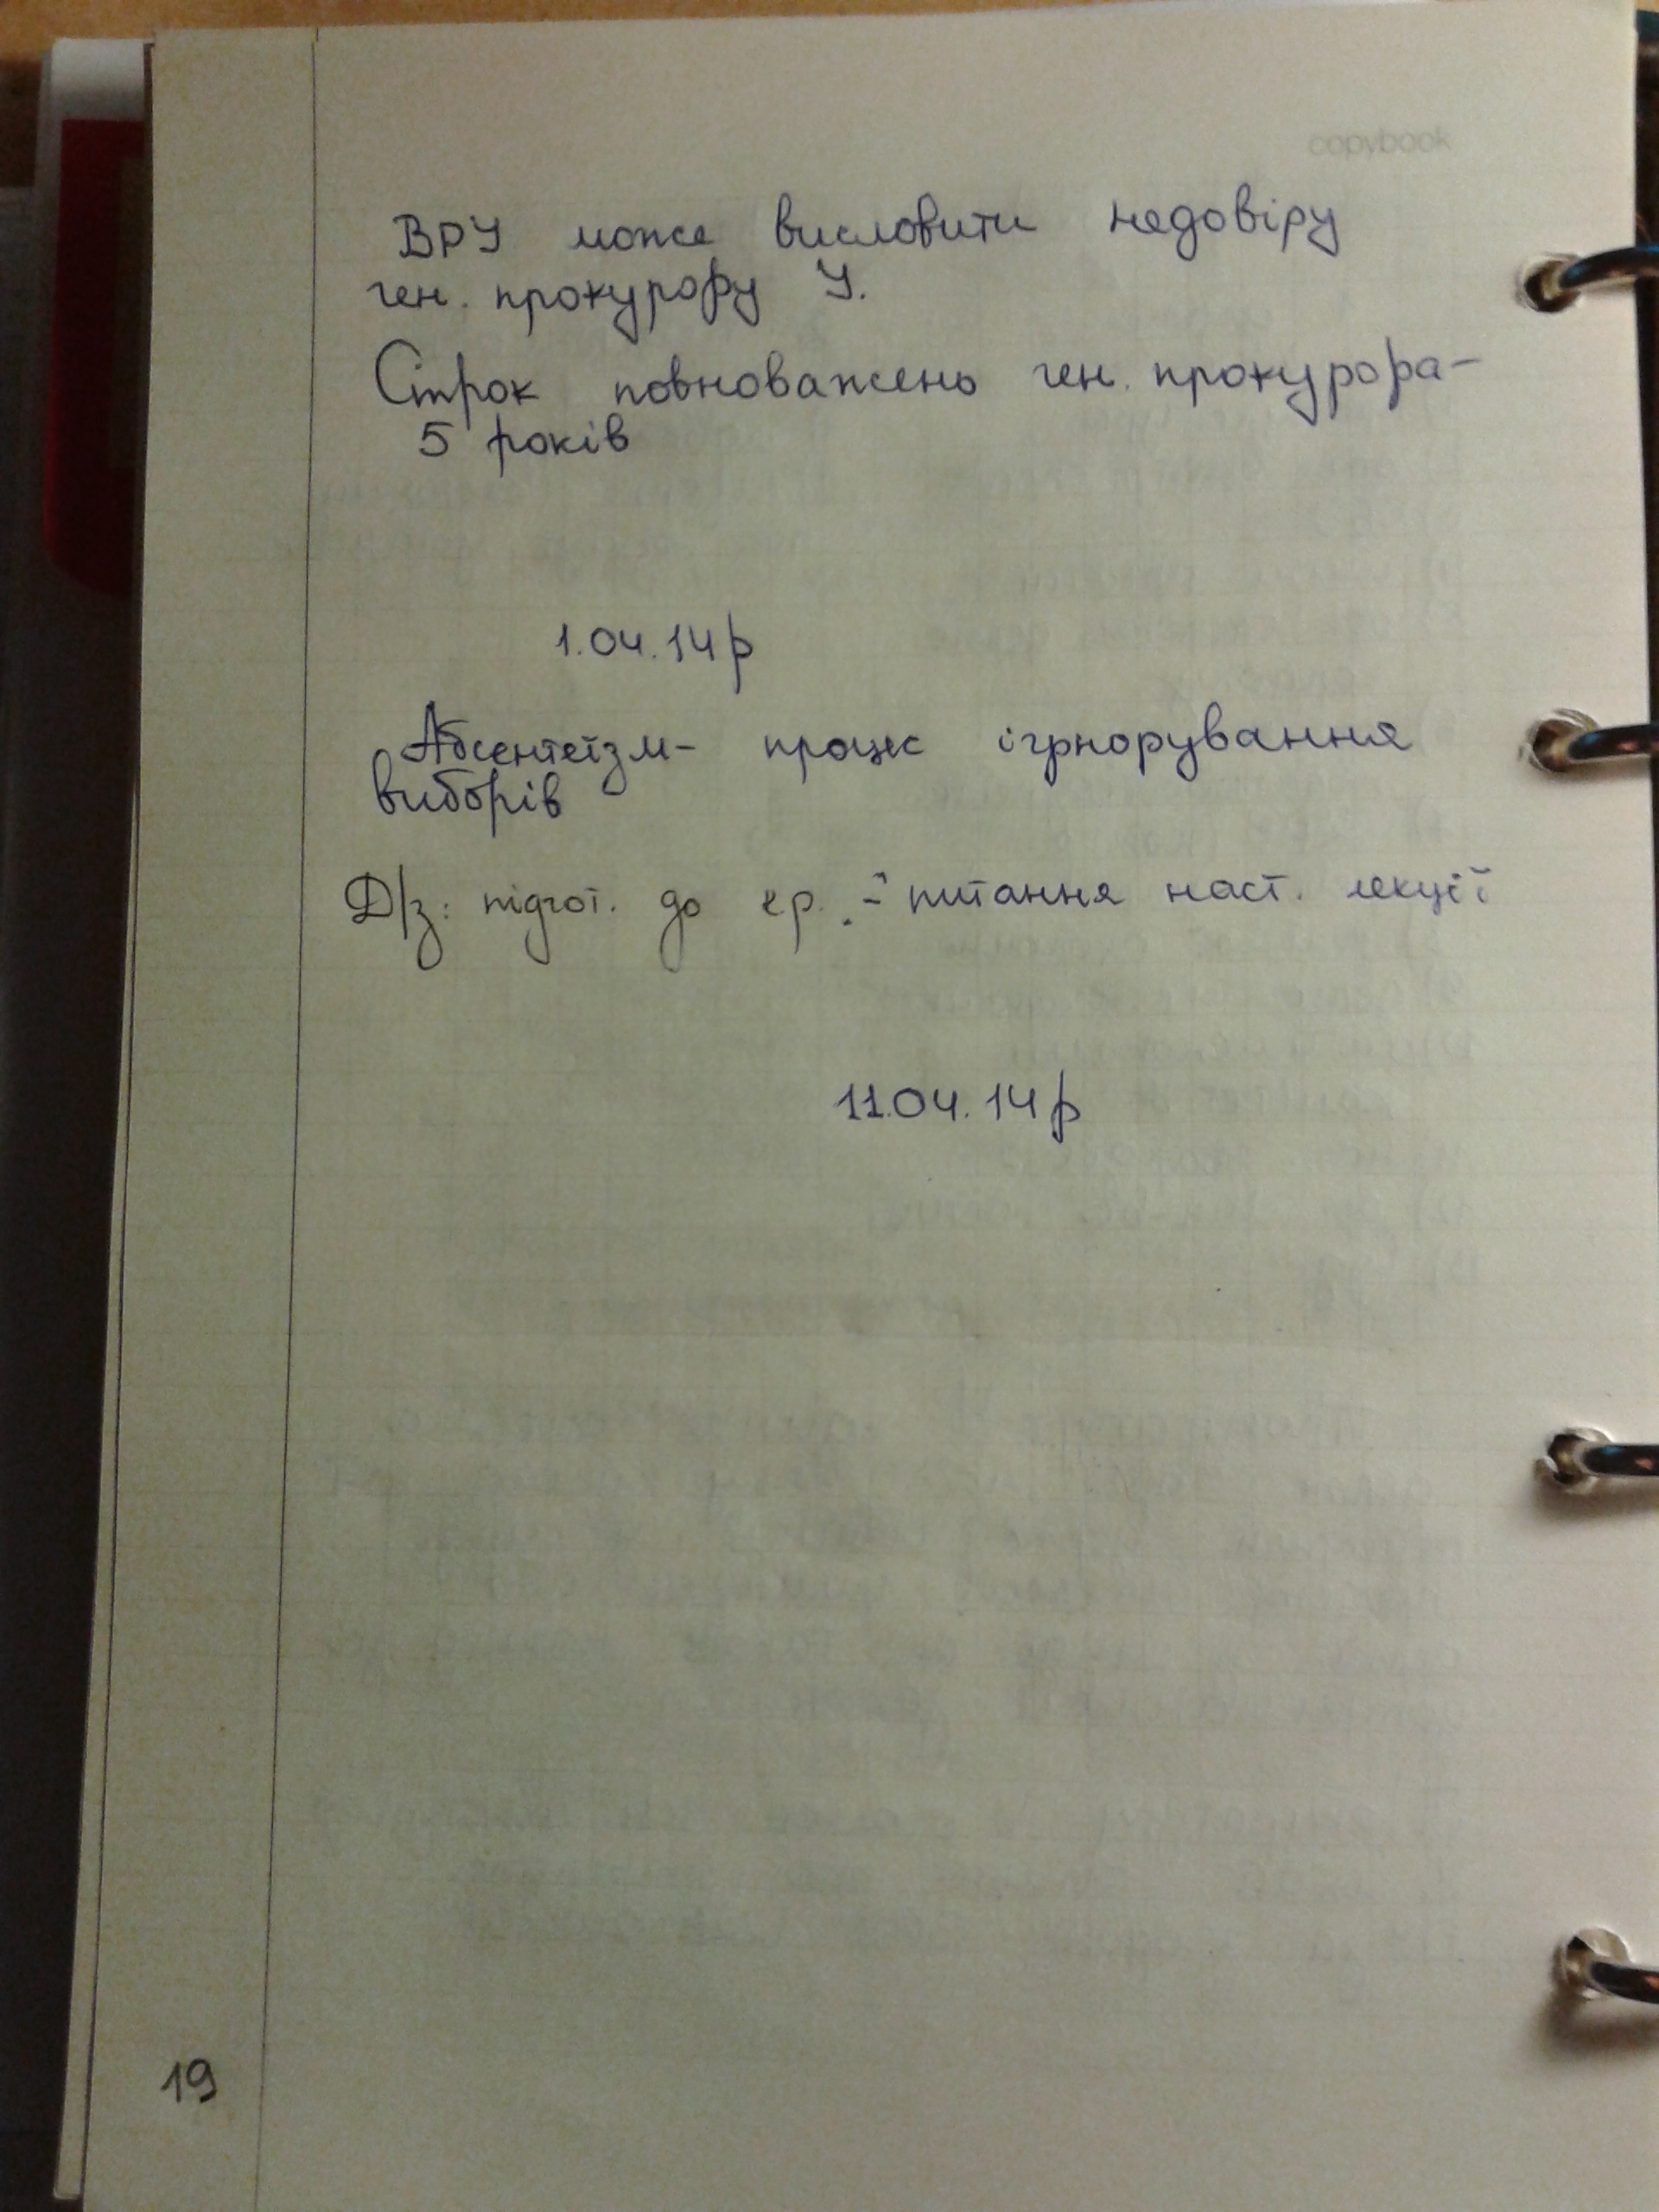 copybook
ВРУ може висловити недовіру
ген. прокурору У.
Строк повноважень ген. прокурора-
5 років
1.04.14р
Абсентеїзм- процес ігрнорування
виборів
Д/з: підгот. до ср. - питання наст. лекції
11.04.14р
19